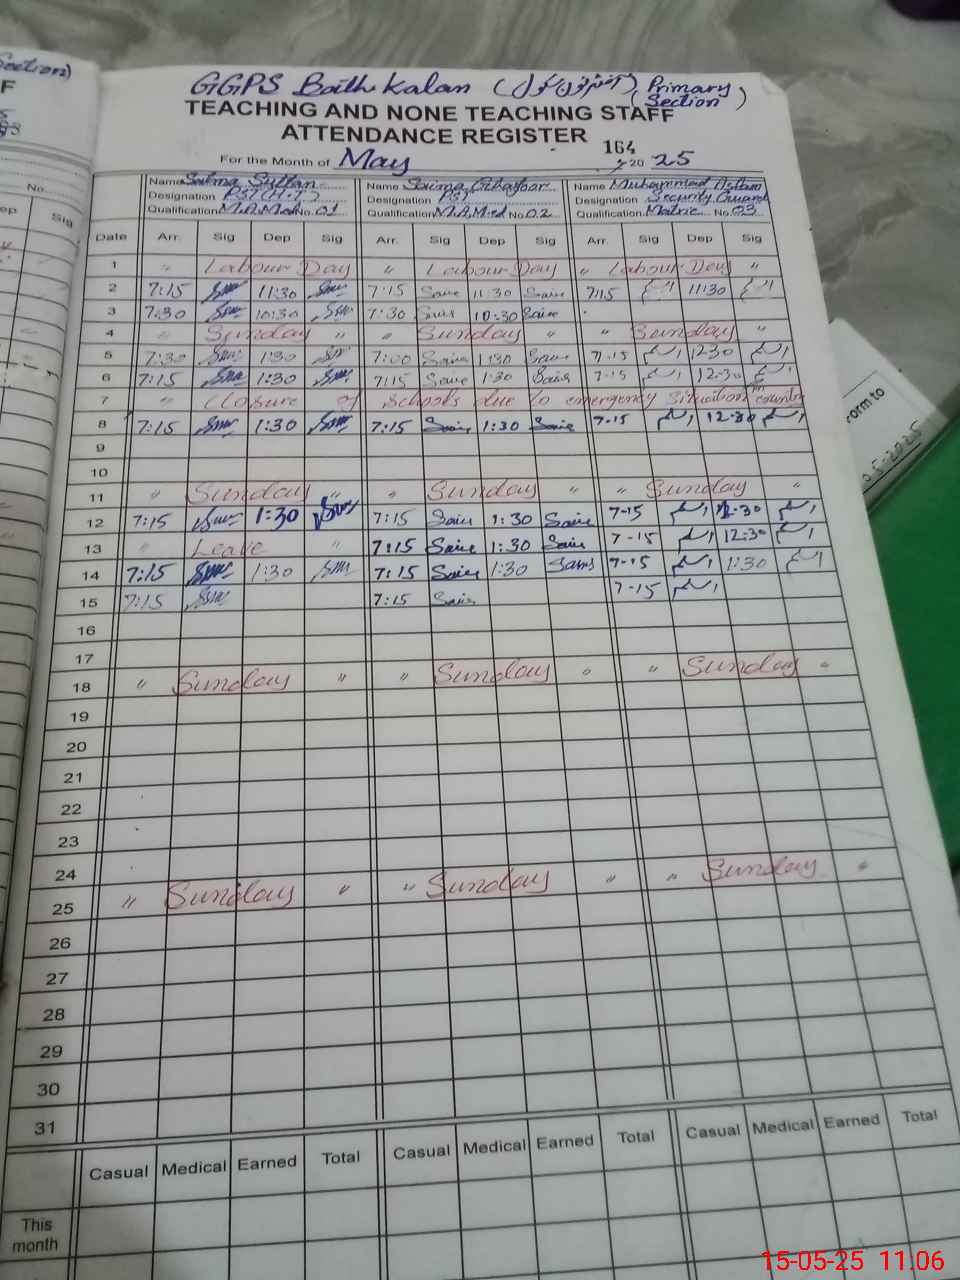 GGPS Baith Kalan ( Primary Section )
TEACHING AND NONE TEACHING STAFF
ATTENDANCE REGISTER
164
For the Month of May 2025
Name Salma Sultan Name Saima Ghafoor Name Muhammad Aslam
Designation PST (H.T) Designation PST Designation Security Guard
Qualification M.A, M.ed No. 01 Qualification M.A, M.ed No. 02 Qualification Matric No. 03
Date Arr. Sig Dep Sig Arr. Sig Dep Sig Arr. Sig Dep Sig
1 " Labour Day " Labour Day " Labour Day "
2 7:15 11:30 7:15 Saima 11:30 Saima 7:15 اسلم 11:30 اسلم
3 7:30 10:30 7:30 Saima 10:30 Saima
4 " Sunday " " Sunday " " Sunday "
5 7:30 1:30 7:00 Saima 1:30 Saima 7-15 اسلم 12-30 اسلم
6 7:15 1:30 7:15 Saima 1:30 Saima 7-15 اسلم 12-30 اسلم
7 " Closure of Schools due to emergency Situation in country
8 7:15 1:30 7:15 Saima 1:30 Saima 7-15 اسلم 12-30 اسلم
9
10
11 " Sunday " " Sunday " " Sunday "
12 7:15 1:30 7:15 Saima 1:30 Saima 7-15 اسلم 12-30 اسلم
13 " Leave " 7:15 Saima 1:30 Saima 7-15 اسلم 12:30 اسلم
14 7:15 1:30 7:15 Saima 1:30 Saima 7-15 اسلم 1:30 اسلم
15 7:15 7:15 Saima 7-15 اسلم
16
17
18 " Sunday " " Sunday " " Sunday "
19
20
21
22
23
24
25 " Sunday " " Sunday " " Sunday "
26
27
28
29
30
31
Casual Medical Earned Total Casual Medical Earned Total Casual Medical Earned Total
This month
15-05-25 11:06